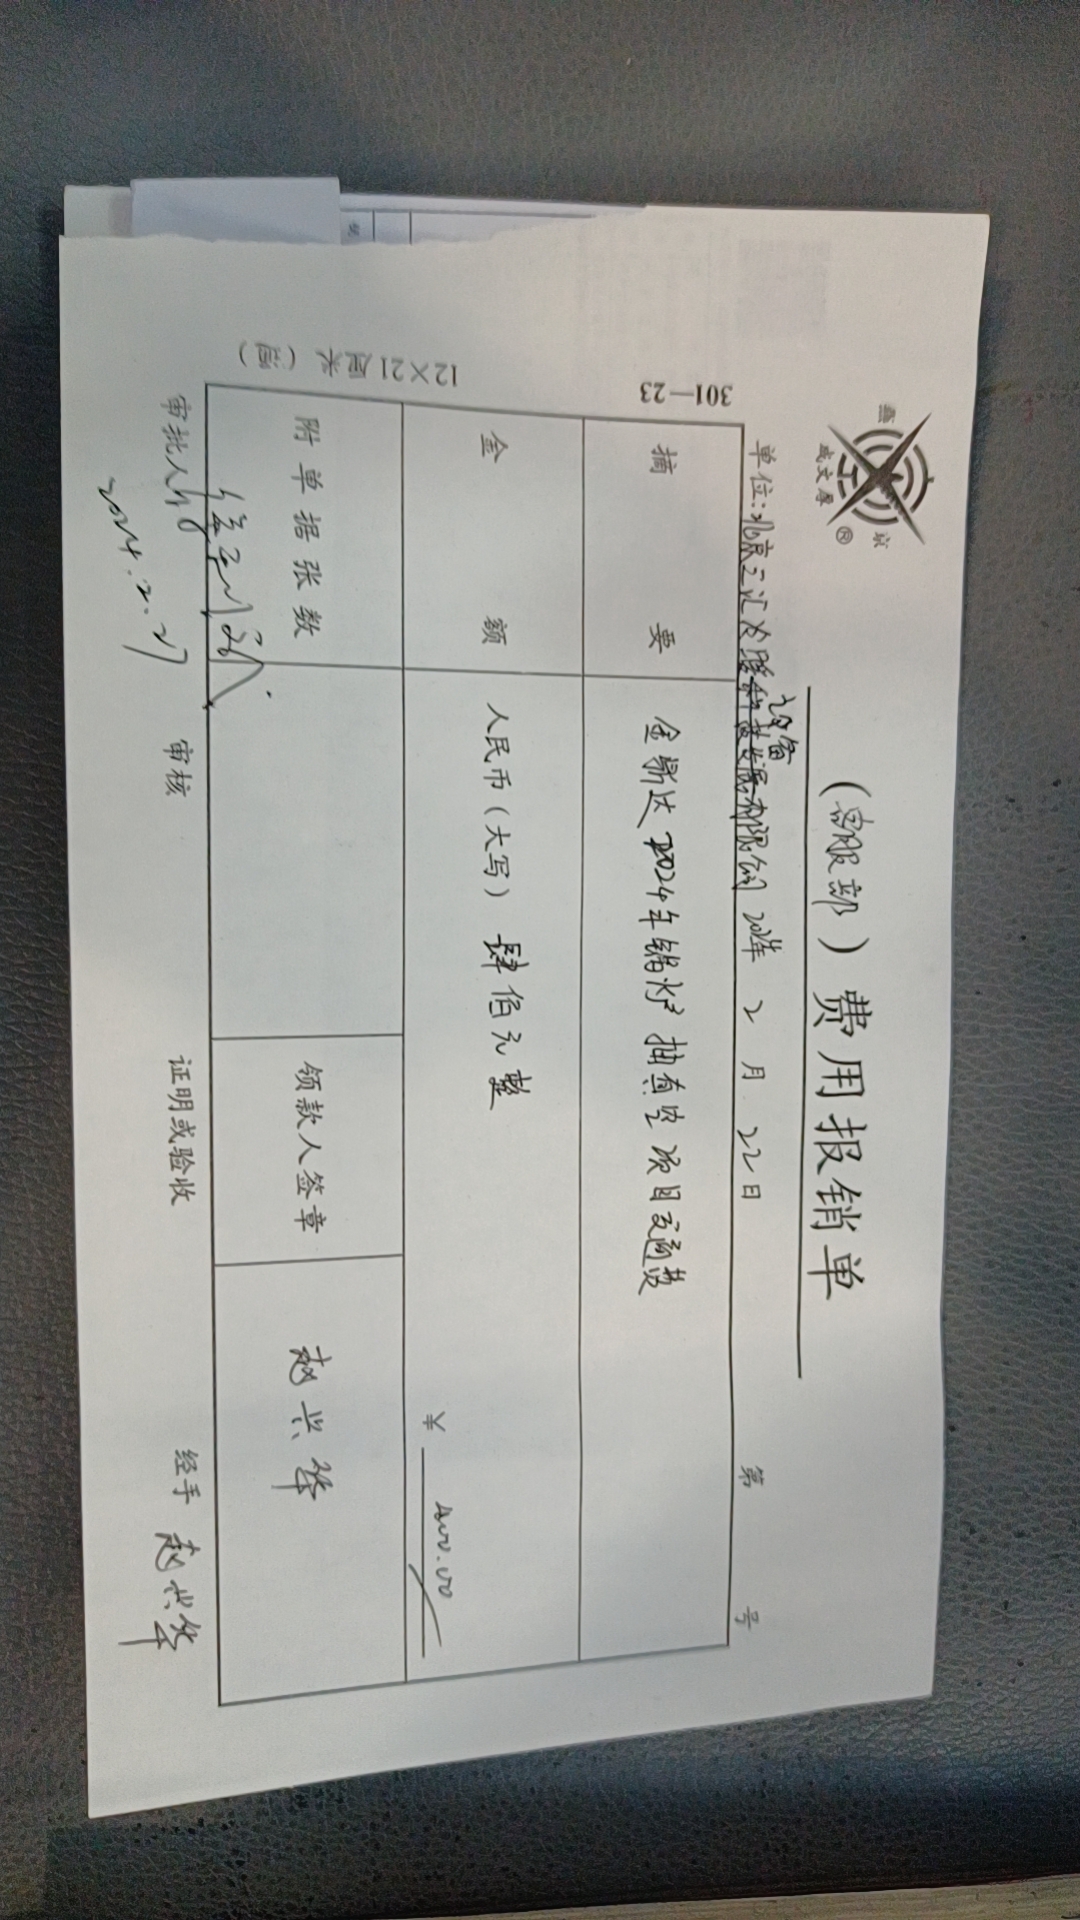 燕 京
成文厚 ®
(客服部)费用报销单
单位:北京三汇 设备 有限公司 2024年 2 月 22 日 第 号
摘 要 金鼎达2024年锅炉抽真空项目交通费
金 额 人民币(大写) 肆佰元整
¥ 400.00
附单据张数 领款人签章 赵兴华
审批人 审核 证明或验收 经手 赵兴华
2024.2.27
301—23
12×21厘米